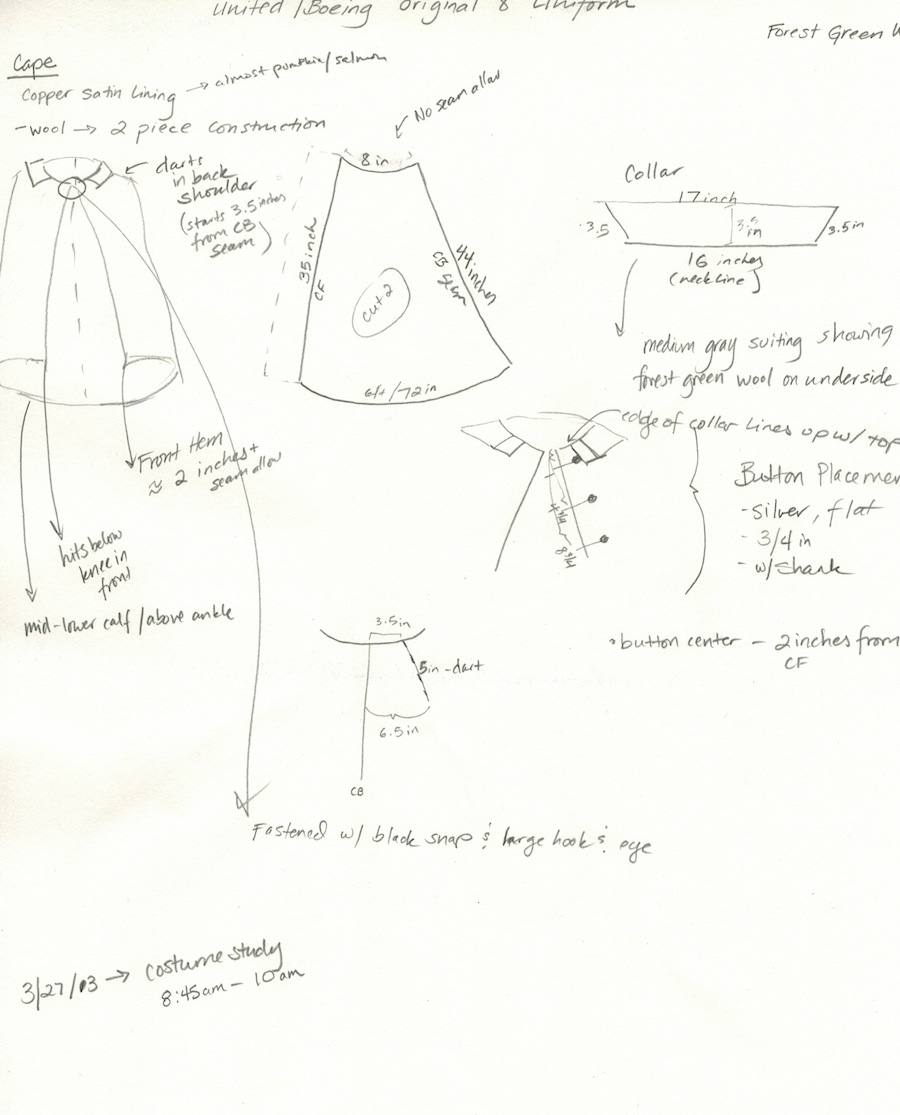 United/Boeing Original 8 Uniform
Forest Green W
Cape
Copper Satin Lining → almost pumpkin/salmon
-wool → 2 piece construction
No seam allow
darts
in back
shoulder
(starts 3.5 inches
from CB
seam)
8 in
35 inch
CF
44 inches
CB seam
cut 2
6ft/72 in
Collar
17 inch
3.5
3.5
in
3.5in
16 inches
(neckline)
medium gray suiting showing
forest green wool on underside
edge of collar lines up w/ top
Front Hem
≈ 2 inches +
seam allow
Button Placemen
- silver, flat
- 3/4 in
- w/shank
4 3/4
8 3/4
hits below
knee in
front
mid-lower calf/above ankle
3.5in
5in-dart
6.5in
CB
• button center - 2 inches from
CF
Fastened w/ black snap & large hook & eye
3/27/03 → costume study
8:45am - 10am